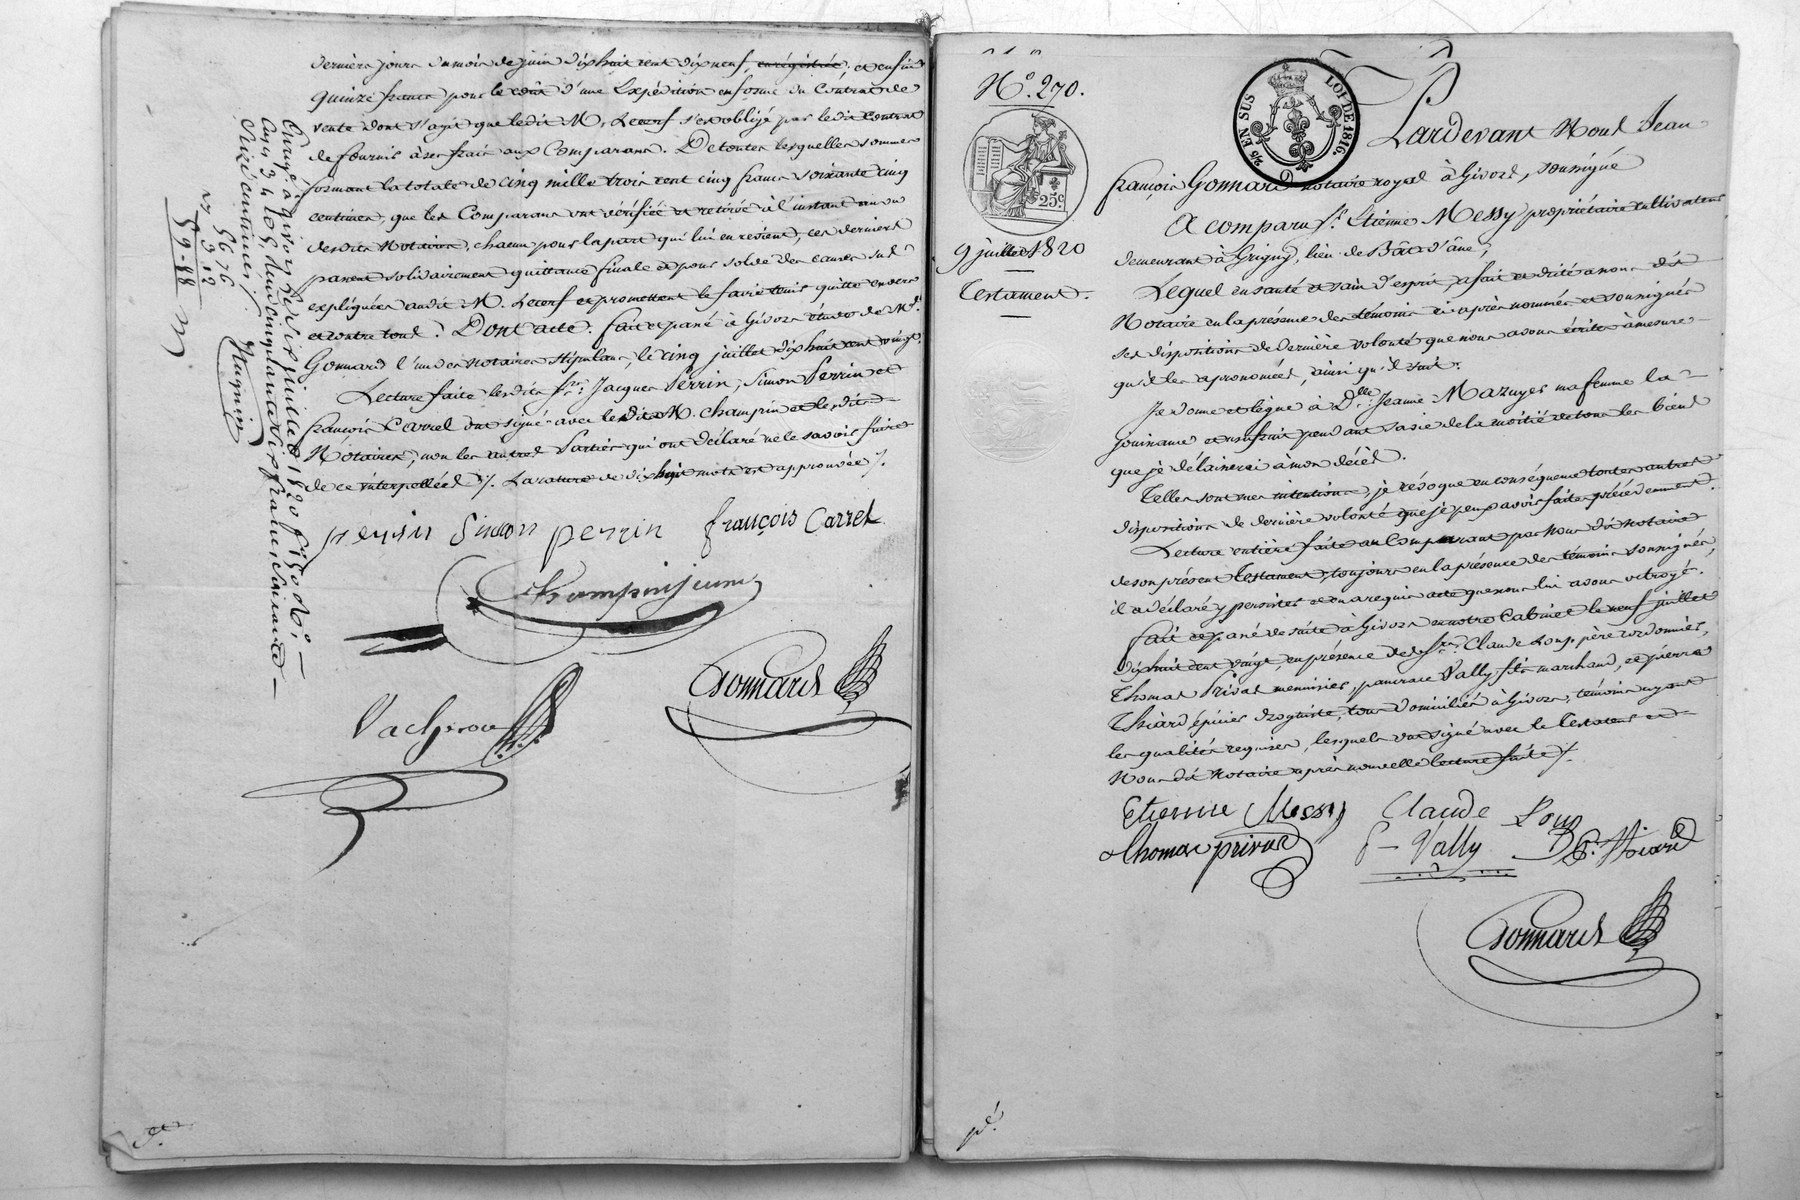 derniers jours du mois de juin dix huit cent dix neuf, enrégistrée, et enfin
quinze francs pour le coût d'une Expédition en forme du Contrat de
vente dont s'agit que ledit M. Lecerf s'est obligé par ledit contrat
de fournir à ses frais aux Comparans. De toutes lesquelles sommes
formant la totale de cinq mille trois cent cinq francs soixante cinq
centimes, que les Comparans ont vérifiée et retirée à l'instant au vu
desdits Notaires, chacun pour la part qui lui en revient, ces derniers
passent solidairement quittance finale et pour solde des causes sus
expliquées audit M. Lecerf et promettent le faire tenir quitte envers
et contre tous. Dont acte. fait et passé à Givors étude de Me.
Gonnard l'un des notaires stipulans, le cinq juillet dix huit cent vingt.
Lecture faite lesdits Srs. Jacques Perrin, Simon Perrin et
françois Carrel ont signé avec ledit M. champin et lesdits
Notaires, non les autres Parties qui ont déclaré ne le savoir faire
de ce interpellées ./. La rature de dix huit mots est approuvée ./.
perrin Simon perrin françois Carrel
Champin jeune
Gonnard
Vacheron
Enregé. à givors le six juillet 1820 fo. 150 do. No.
6676
3 12
59-88
Mugnier
No. 270.
25c
25c EN SUS
LOI DE 1816.
9 juillet 1820
Testament.
Pardevant Nous Jean
françois Gonnard notaire royal à Givors, soussigné
A comparu Sr. Etienne Messy propriétaire cultivateur
demeurant à Grigny, lieu de Bât d'âne,
Lequel en santé et sain d'esprit, a fait et dicté à nous dit
Notaire en la présence des témoins ci après nommés et soussignés
ses dispositions de dernière volonté que nous avons écrites à mesure
qu'il les a prononcées, ainsi qu'il suit.
Je donne et lègue à Dlle. Jeanne Mazuyer ma femme la
jouissance et usufruit pendant sa vie de la moitié de tous les biens
que je délaisserai à mon décès.
Telles sont mes intentions, je révoque en conséquence toutes autres
dispositions de dernière volonté que je peux avoir faites précédemment.
Lecture entière faite au Comparant par Nous dit notaire
de son présent Testament, toujours en la présence des témoins soussignés,
il a déclaré y persister et en a requis acte que nous lui avons octroyé.
fait et passé de suite à Givors en notre Cabinet le neuf juillet
dix huit cent vingt, en présence de des Srs. Claude Loup père cordonnier,
Thomas Privat menuisier, pancrace Vally fils marchand, et pierre
Thiard épicier droguiste, tous domiciliés à Givors, témoins ayant
les qualités requises, lesquels ont signé avec le Testateur et
Nous dit notaire après nouvelle lecture faite ./.
Etienne Messy Claude Loup
thomas privat P Vally P. Thiard
Gonnard